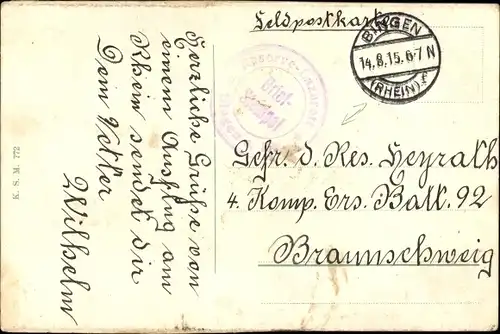 Feldpostkarte
BINGEN
14.8.15.6-7 N
(RHEIN) f
Brief-
Stempel
Herzliche Grüße von
einem Ausflug am
Rhein sendet dir
Dein Vetter
Wilhelm
Gefr. d. Res. Heyrath
4. Komp. Ers. Batl. 92
Braunschweig
K. S. M. 772